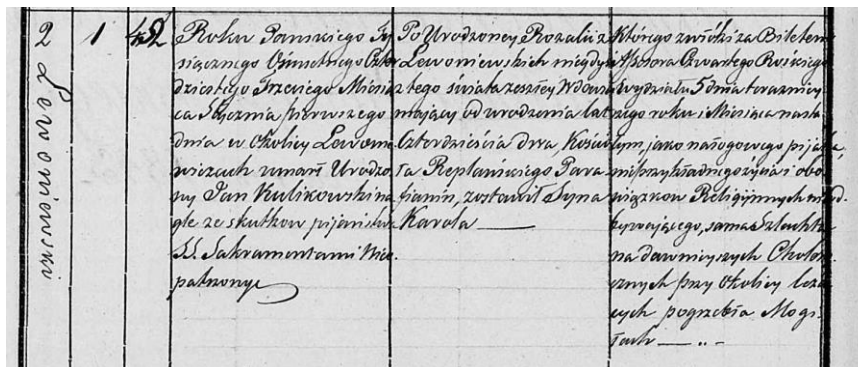 2 Lewoniewski
1
42
Roku Pańskiego Ty
siącznego Ośmsetnego Czter
dziestego Trzeciego Miesią
ca Stycznia pierwszego
dnia w Okolicy Lewonie
wiczach umarł Urodzo
ny Jan Kulikowski na
gle ze skutkow pijaństwa
SS. Sakramentami Nieo
patrzony
Po Urodzoney Rozalii z
Lewoniewskich niegdyś
z tego świata zeszłey Wdowiec
mający od urodzenia lat
Czterdzieścia dwa, Kościo
ła Replańskiego Para
fianin, zostawił Syna
Karola
Którego zwłóki za Biletem
Assesora Czwartego
Wydziału 5 dnia terazniey
szego roku i Miesiąca nasta
łym, jako nałogowego pijaka,
nieprzykładnego życia i obo
wiązkow Religijnych nied.
bywającego, sama Szlachta
na dawnieyszych Cholery
cznych przy Okolicy leżą
cych pogrzebła Mogi
łach